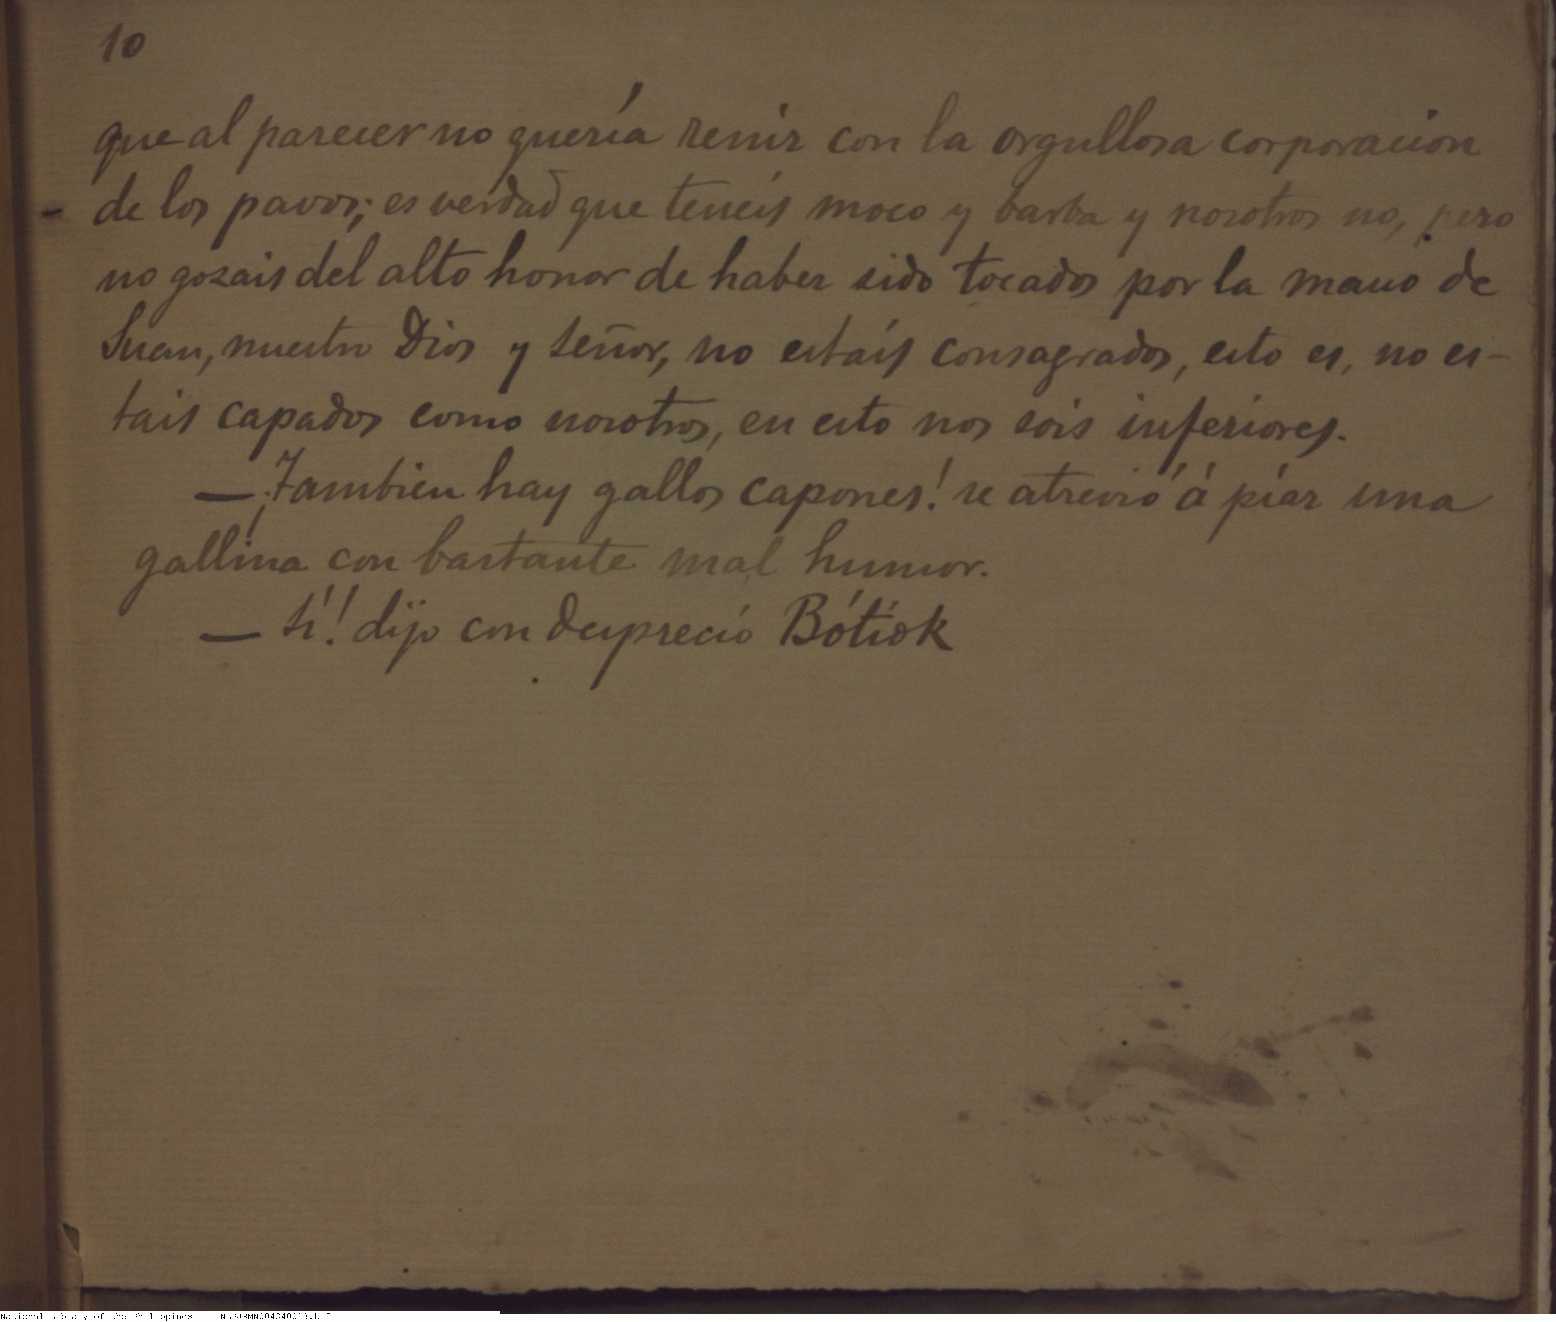 10
que al parecer no quería renir con la orgullosa corporacion
de los pavos; es verdad que teneis moco y barba y nosotros no, pero
no gozais del alto honor de haber sido tocados por la mano de
Suan, nuestro Dios y Señor, no estaís consagrados, esto es, no es-
tais capados como nosotros, en esto nos sois inferiores.
— ¡Tambien hay gallos capones! se atrevió á píar una
gallina con bastante mal humor.
— Sí! dijo con desprecio Bótiok
National Library of the Philippines